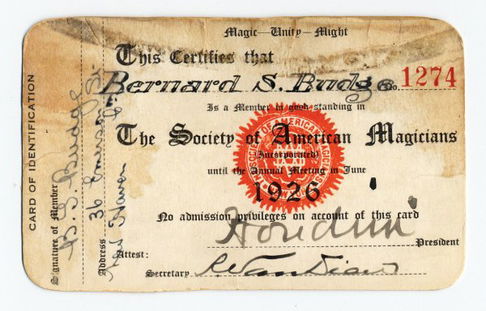 Magic—Unity—Might
This Certifies that
Bernard S. Budge No. 1274
Is a Member in good standing in
The Society of American Magicians
(Incorporated)
until the Annual Meeting in June
1926
No admission privileges on account of this card
Houdini
President
Attest:
Secretary
CARD OF IDENTIFICATION
Signature of Member B. S. Budge
Address 36
Haven